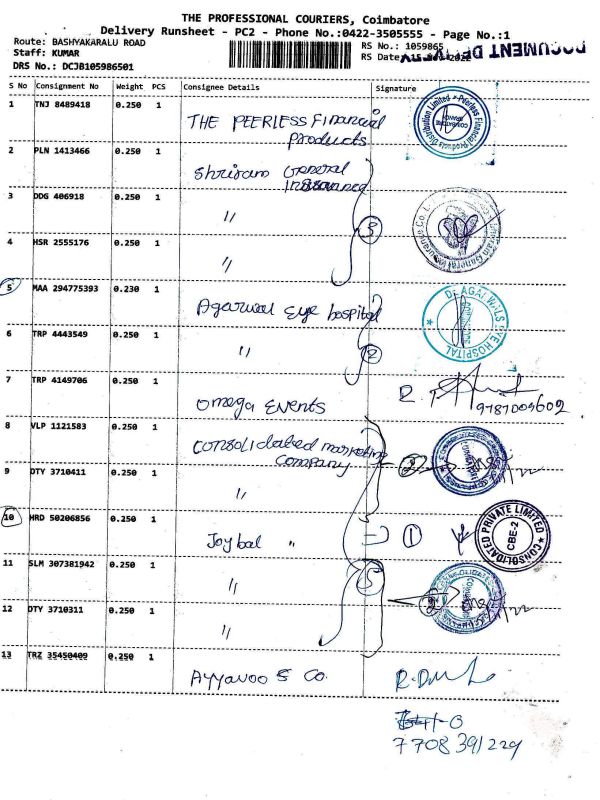 THE PROFESSIONAL COURIERS, Coimbatore
Delivery Runsheet - PC2 - Phone No.:0422-3505555 - Page No.:1
Route: BASHYAKARALU ROAD
RS No.: 1059865
Staff: KUMAR
RS Date
DOCUMENT
DRS No.: DCJB105986501
S No Consignment No Weight PCS Consignee Details Signature
1 TNJ 8489418 0.250 1 THE PEERLESS Financial
Products
2 PLN 1413466 0.250 1 Shriram General
Insurance
3 DDG 406918 0.250 1 "
3
4 HSR 2555176 0.250 1 "
5 MAA 294775393 0.230 1 Agarwal Eye hospital
DR AGARWALS EYE HOSPITAL
6 TRP 4443549 0.250 1 "
2
7 TRP 4149706 0.250 1 Omega Events
9787009602
8 VLP 1121583 0.250 1 Consolidated marketing
Company
2
9 DTY 3710411 0.250 1 "
10 HRD 50206856 0.250 1 Joybal "
1
CONSOLIDATED PRIVATE LIMITED
CBE-2
11 SLM 307381942 0.250 1 "
5
2
12 DTY 3710311 0.250 1 "
13 TRZ 35450409 0.250 1 Ayyavoo & Co.
7708391229